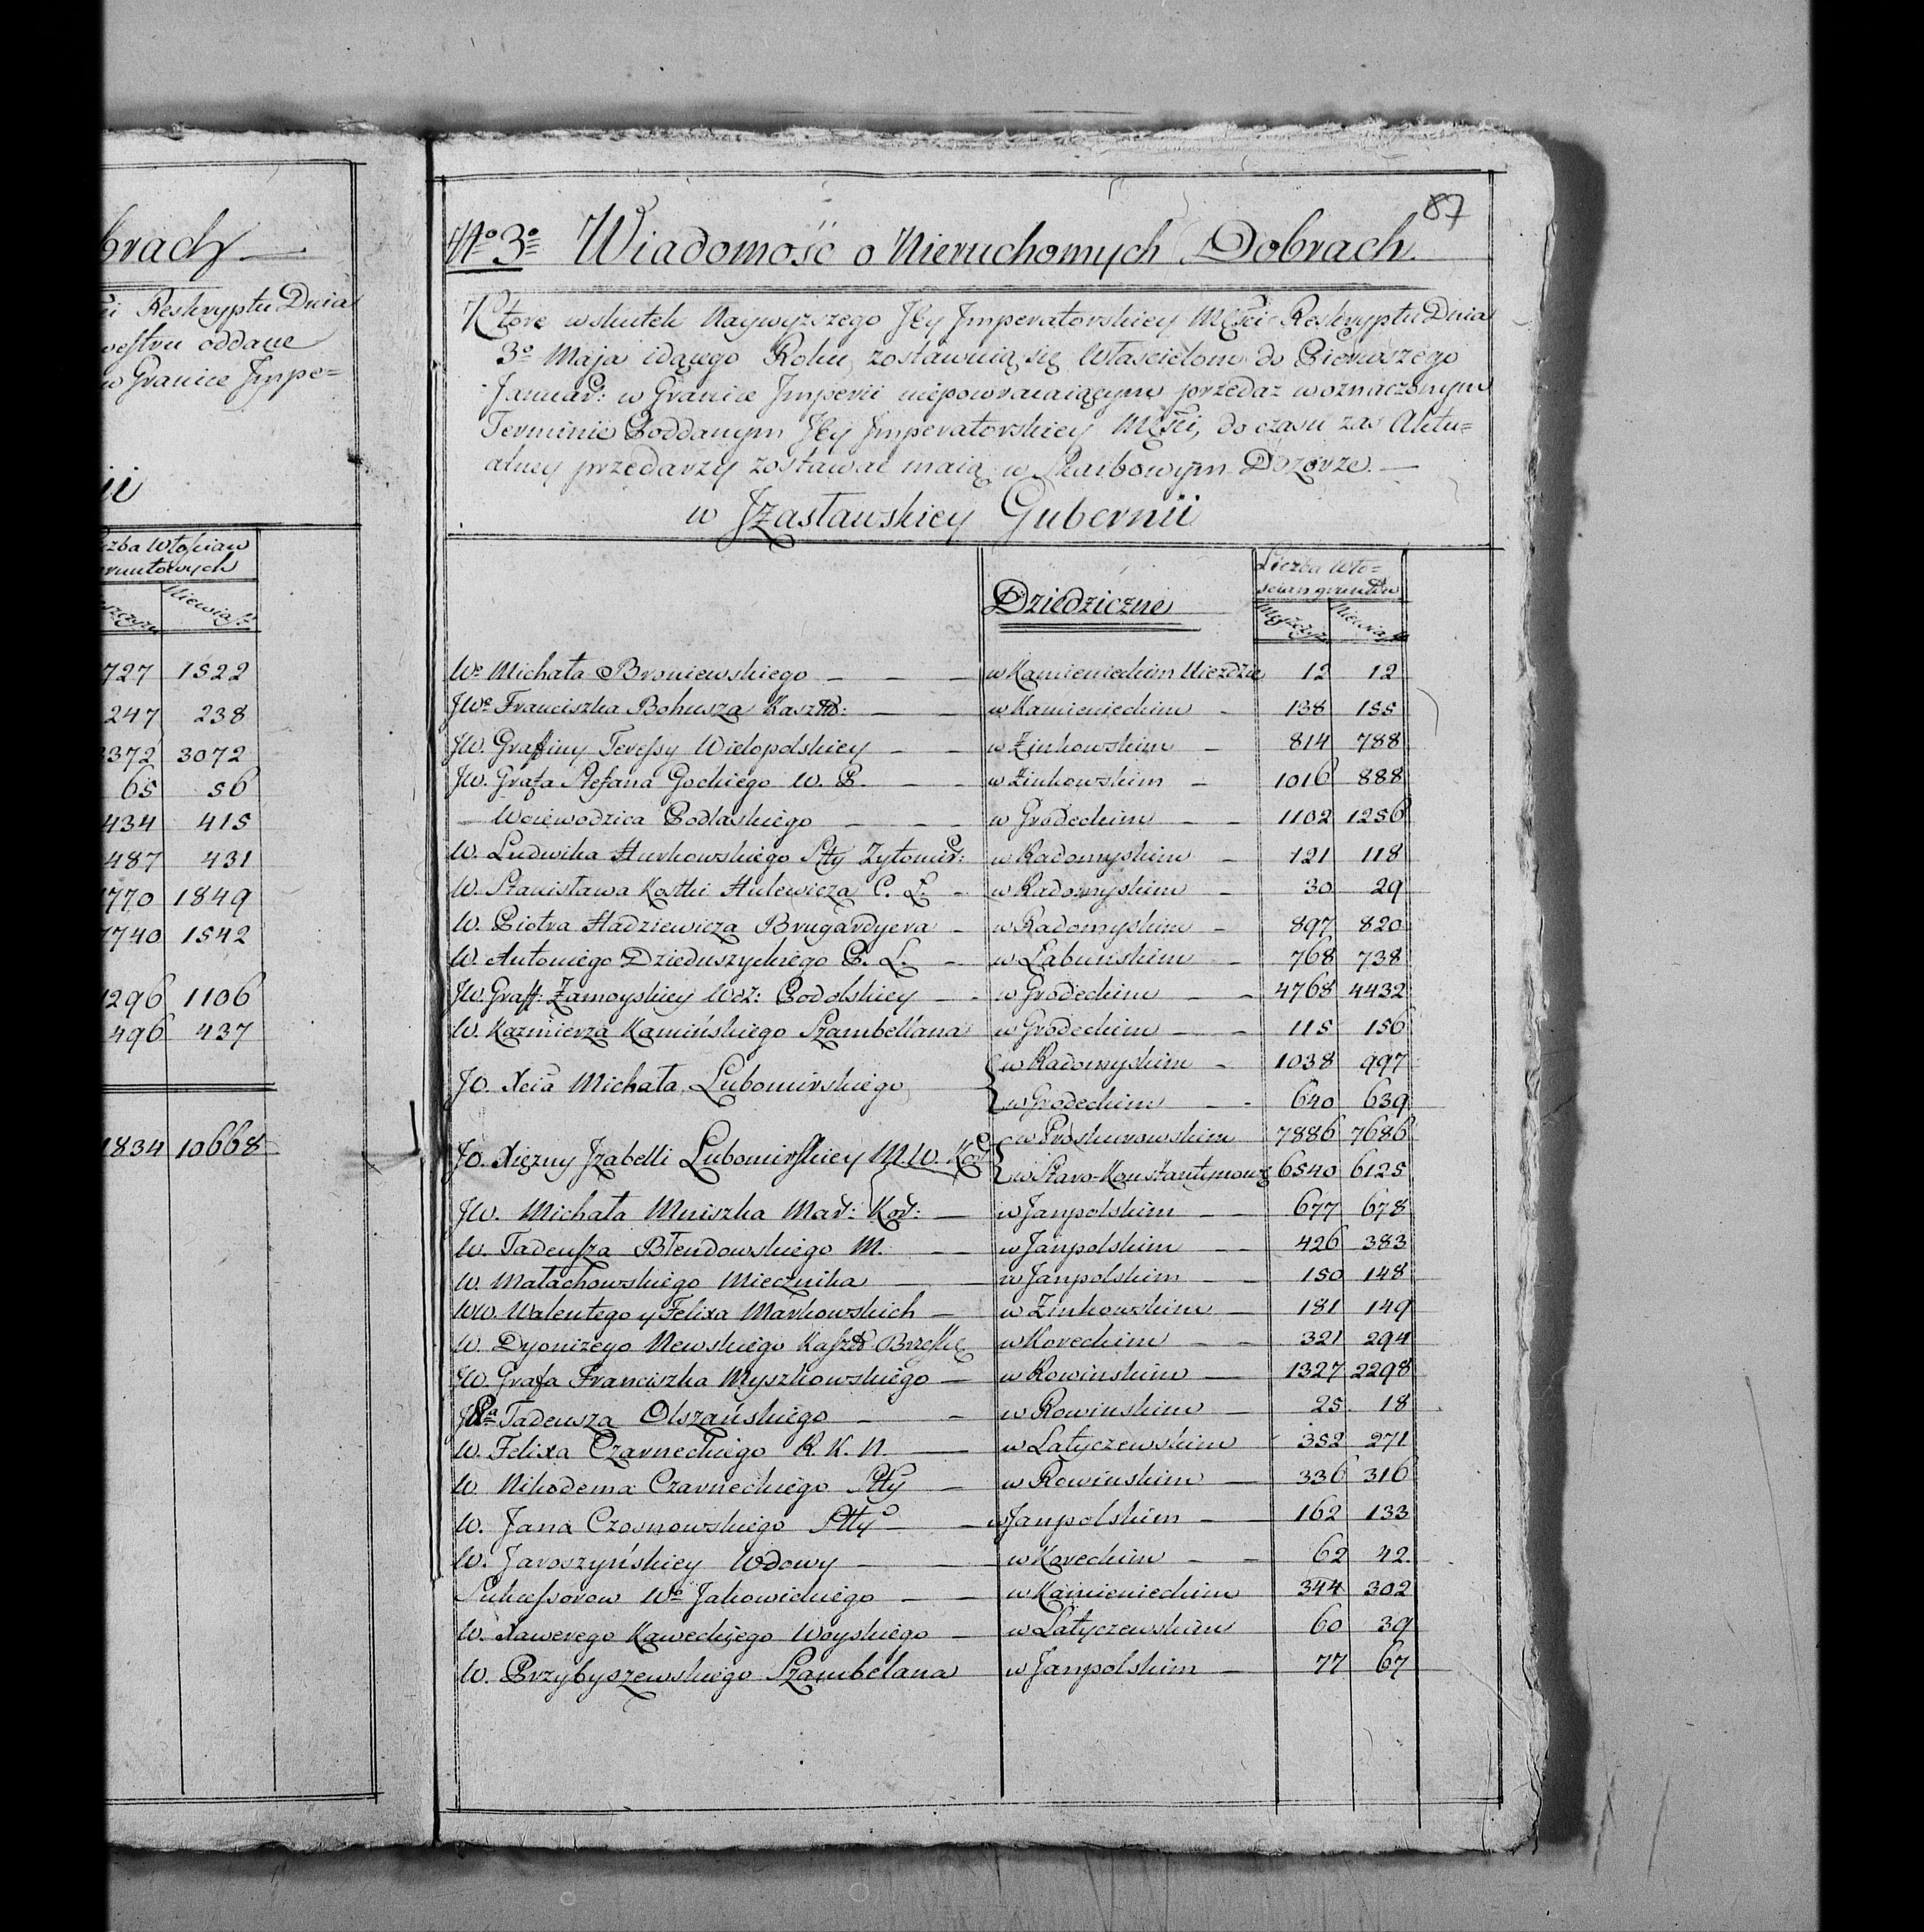 brach
Reskryptu Dnia
oddane
w Granice Jmpe=
ii
Włościan
gruntowych
Niewiast
727 1522
247 238
3372 3072
65 56
434 415
487 431
1770 1849
1740 1542
1296 1106
496 437
1834 10668
87
No 3o Wiadomość o Nieruchomych Dobrach
Ktore wskutek Naywyższego Jey Jmperatorskiey Mści Reskryptu Dnia
3o Maja idącego Roku, zostawuią się Włascicielom do Pierwszego
Januar: w Granice Jmperii niepowracaiącym przedaż w oznaczonym
Terminie Poddanym Jey Jmperatorskiey Mści, do czasu zas Aktu=
alney przedarzy zostawać maią w Skarbowym Dozorze. —
w Jzasławskiey Gubernii
Dziedziczne
Liczba Wło=
scian gruntow
Męszczyzn Niewiast
We Michała Broniewskiego — — — w Kamienieckim Uieździe 12 12
JWe Franciszka Bohusza Kaszt: — — w Kamienieckim - 138 155
JW. Graffiny Teressy Wielopolskiey — — w Zinkowskim — 814 788
JW. Grafa Stefana Gockiego W. P. — — w Zinkowskim — 1016 888
— Woiewodzica Podlaskiego — — — w Grodeckim — — 1102 1256
W. Ludwika Hurkowskiego Stty Zytomir: w Radomyskim — 121 118
W. Stanisława Kostki Hulewicza C. L. — w Radomyskim — 30 29
W. Piotra Hadziewicza Brygardyera — w Radomyskim — 897 820
W. Antoniego Dzieduszyckiego P. L. — w Łabunskim — 768 738
JW. Graff: Zamoyskiey Woi: Podolskiey — - w Grodeckim — — 4768 4432
W. Kazmierza Kamińskiego Szambellana w Grodeckim — — 115 156
JO. Xcia Michała Lubomirskiego { w Radomyskim — 1038 997
{ w Grodeckim — - 640 639
JO. Xiężny Jzabelli Lubomirskiey M. W. Kor { w Proskurowskim 7886 7686
{ w Staro-Konstantynow: 6540 6125
JW. Michała Mniszka Mar: Kor: — w Janpolskim — — 677 678
W. Tadeusza Błendowskiego M. — — w Janpolskim — — 426 383
W. Małachowskiego Miecznika — w Janpolskim — — 150 148
WW. Walentego y Felixa Markowskich — w Zinkowskim — 181 149
W. Dyonizego Newskiego Kaszt w Koreckim — — 321 294
JW. Grafa Franciszka Myszkowskiego — w Rowinskim — 1327 2298
Pa Tadeusza Olszańskiego — — w Rowinskim — 25 18
W. Felixa Czarneckiego R. K. N. — w Latyczewskim 352 271
W Nikodema Czarneckiego Stty — w Rowinskim — 336 316
W. Jana Czosnowskiego Stty — — w Janpolskim — 162 133
W. Jaroszyńskiey Wdowy — — w Koreckim — — 62 42
Sukcessorow We Jakowickiego — — w Kamienieckim 344 302
W. Xawerego Kaweckiego Woyskiego — w Latyczewskim 60 39
W. Przybyszewskiego Szambelana w Janpolskim — 77 67